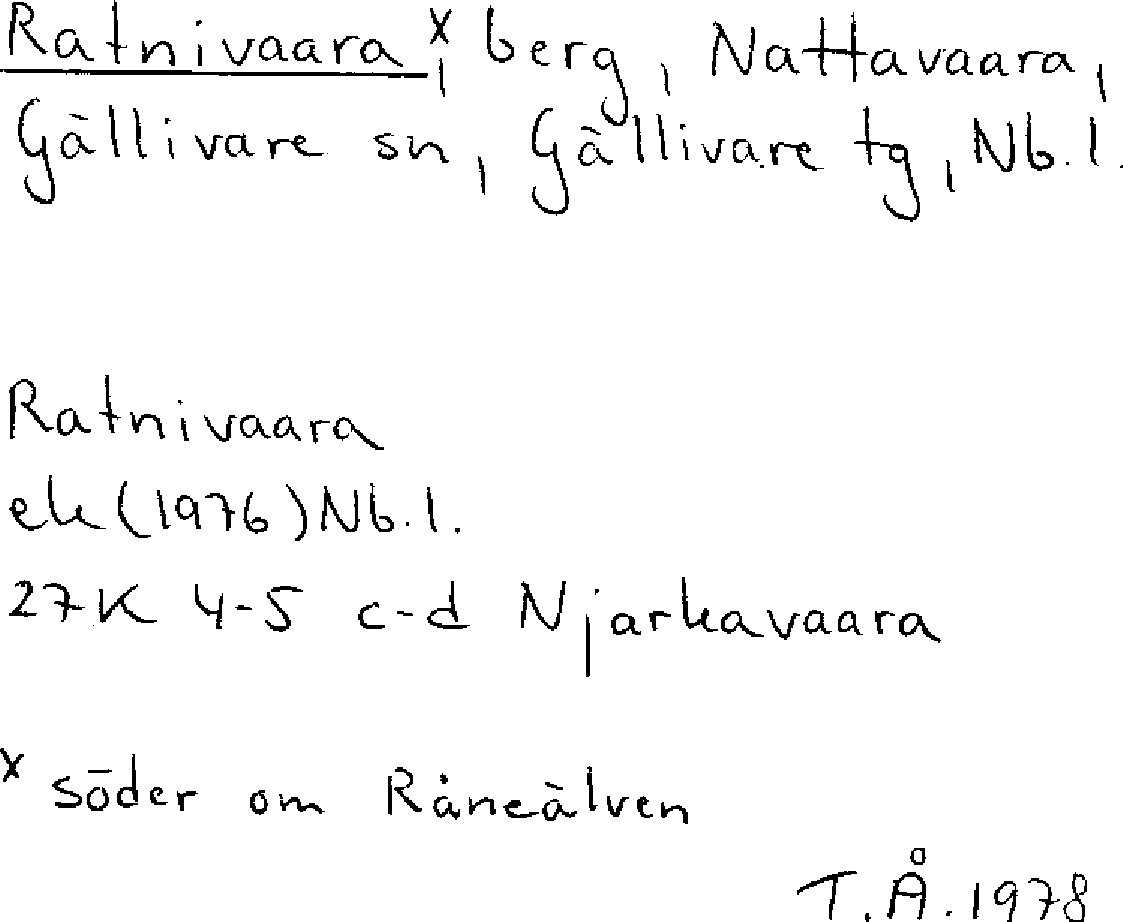 Ratnivaara x, berg, Nattavaara,
Gällivare sn, Gällivare tg, Nb.l.
Ratnivaara
ek (1976) Nb.l.
27K 4-5 c-d Njarkavaara
x söder om Råneälven
T.Å. 1978